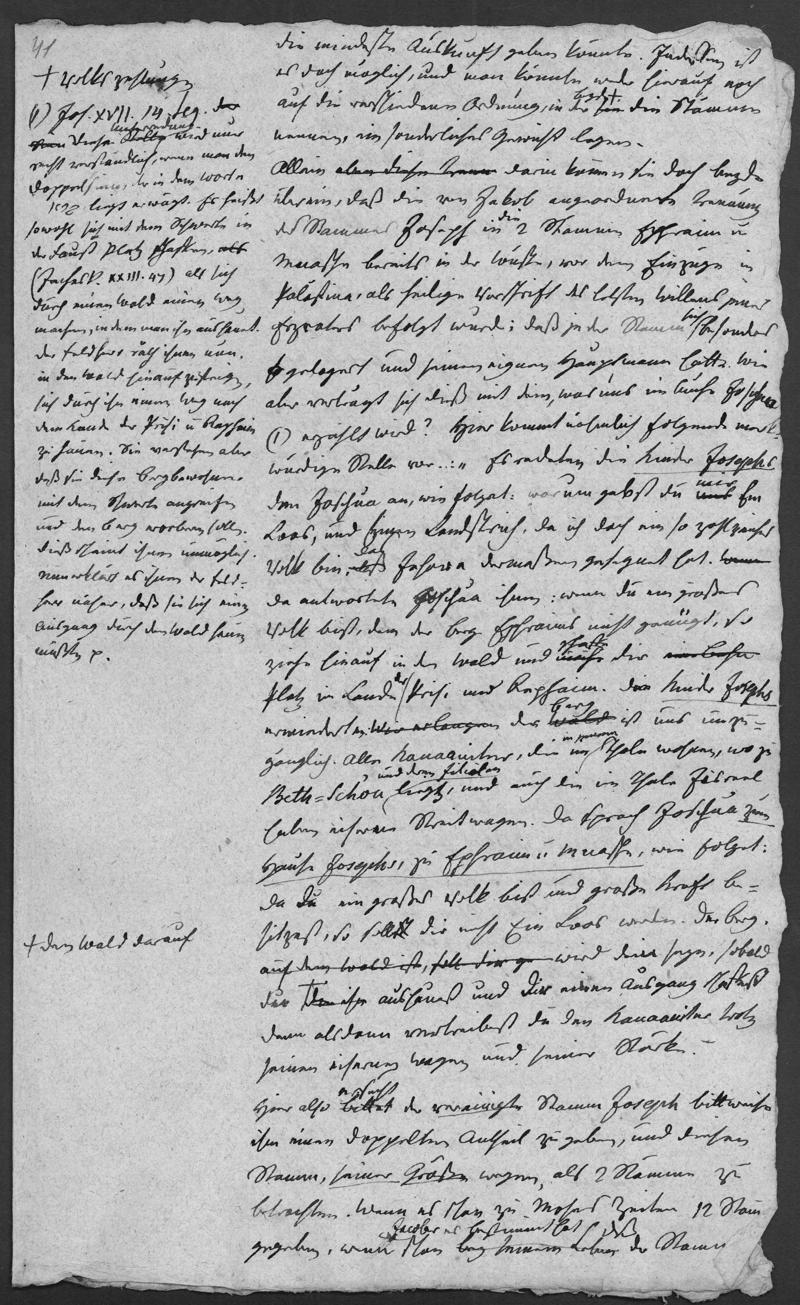 41
+ Volkszählung
(1) Jos. XVII. 14. seq.
Diese wird nur
recht verständlich, wenn man den
Doppelsinn, der in dem Worte
liegt erwägt. Es heißt
sowohl sich mit dem Schwerte in
der Faust Platz schaffen, als
XXIII. 47) als sich
durch einen Wald einen Weg
machen, indem man ihn aushaut.
Der Feldherr räth ihnen nun,
in den Wald hinauf zu steigen,
sich durch ihn einen Weg nach
dem Lande der Prisi u Raphaim
zu hauen. Sie verstehen aber
daß sie diese Bergbewohner
mit dem Schwerte angreifen
und den Berg erobern sollen.
Dieß scheint ihnen unmöglich.
Nun erklärt es ihnen der Feld-
herr näher, daß sie sich einen
Ausgang durch den Wald hauen
müßten p.
+ den Wald darauf
die mindeste Auskunft geben könnte. Indessen ist
es doch möglich, und man könnte weder hierauf noch
auf die verschiedene Ordnung, in der sie die Stämme
nennen, ein sonderliches Gewicht legen.
Allein darin kommen sie doch beyde
überein, daß die von Jakob angeordnete Trennung
des Stammes Joseph in die 2 Stämme Ephraim u
Manasse bereits in der Wüste, vor dem Einzuge in
Palästina, als heilige Vorschrift des letzten Willens jenes
Erzvaters befolgt wurde; daß jeder Stamm sich besonders
gelagert und seinen eignen Hauptmann hatte. Wie
aber verträgt sich dieß mit dem, was uns im Buche Joschua
(1) erzählt wird? Hier kommt nehmlich folgende merk-
würdige Stelle vor: „ Es redeten die Kinder Josephs
den Joschua an, wie folget: warum gabst du mir Ein
Loos, und Einen Landstrich, da ich doch ein so zahlreiches
Volk bin, das Jehowa dermaßen gesegnet hat.
da antwortete Joschua ihnen: wenn du ein großes
Volk bist, dem der Berg Ephraims nicht genügt, so
ziehe hinauf in den Wald und schaffe dir
Platz im Lande der Prisi und Rephaim. Die Kinder Josephs
erwiederten: der Berg ist uns unzu-
gänglich. Alle Kanaaniter, die in jenem Thale wohnen, wo zu
Beth-Schön und dem Filialen liegt, und auch die im Thale Jisreel
haben eiserne Streitwagen. Da sprach Joschua zum
Hause Josephs, zu Ephraim u Manasse, wie folget:
da du ein großes Volk bist und große Kraft be-
sitzest, so soll dir nicht Ein Loos werden. Der Berg,
auf dem Wald ist, wird dein seyn, sobald
du + ihn aushauest und dir einen Ausgang
denn alsdann vertreibest du den Kanaaniter trotz
seinen eisernen Wagen und seiner Stärke.
Hier also ersucht der vereinigte Stamm Joseph bittweise
ihm einen doppelten Antheil zu geben, und diesen
Stamm, seiner Größe wegen, als 2 Stämme zu
betrachten. Wenn es schon zu Moses Zeiten 12 Stäm
gegeben, wenn schon Jacob es bestimmt hat, daß der Stamm